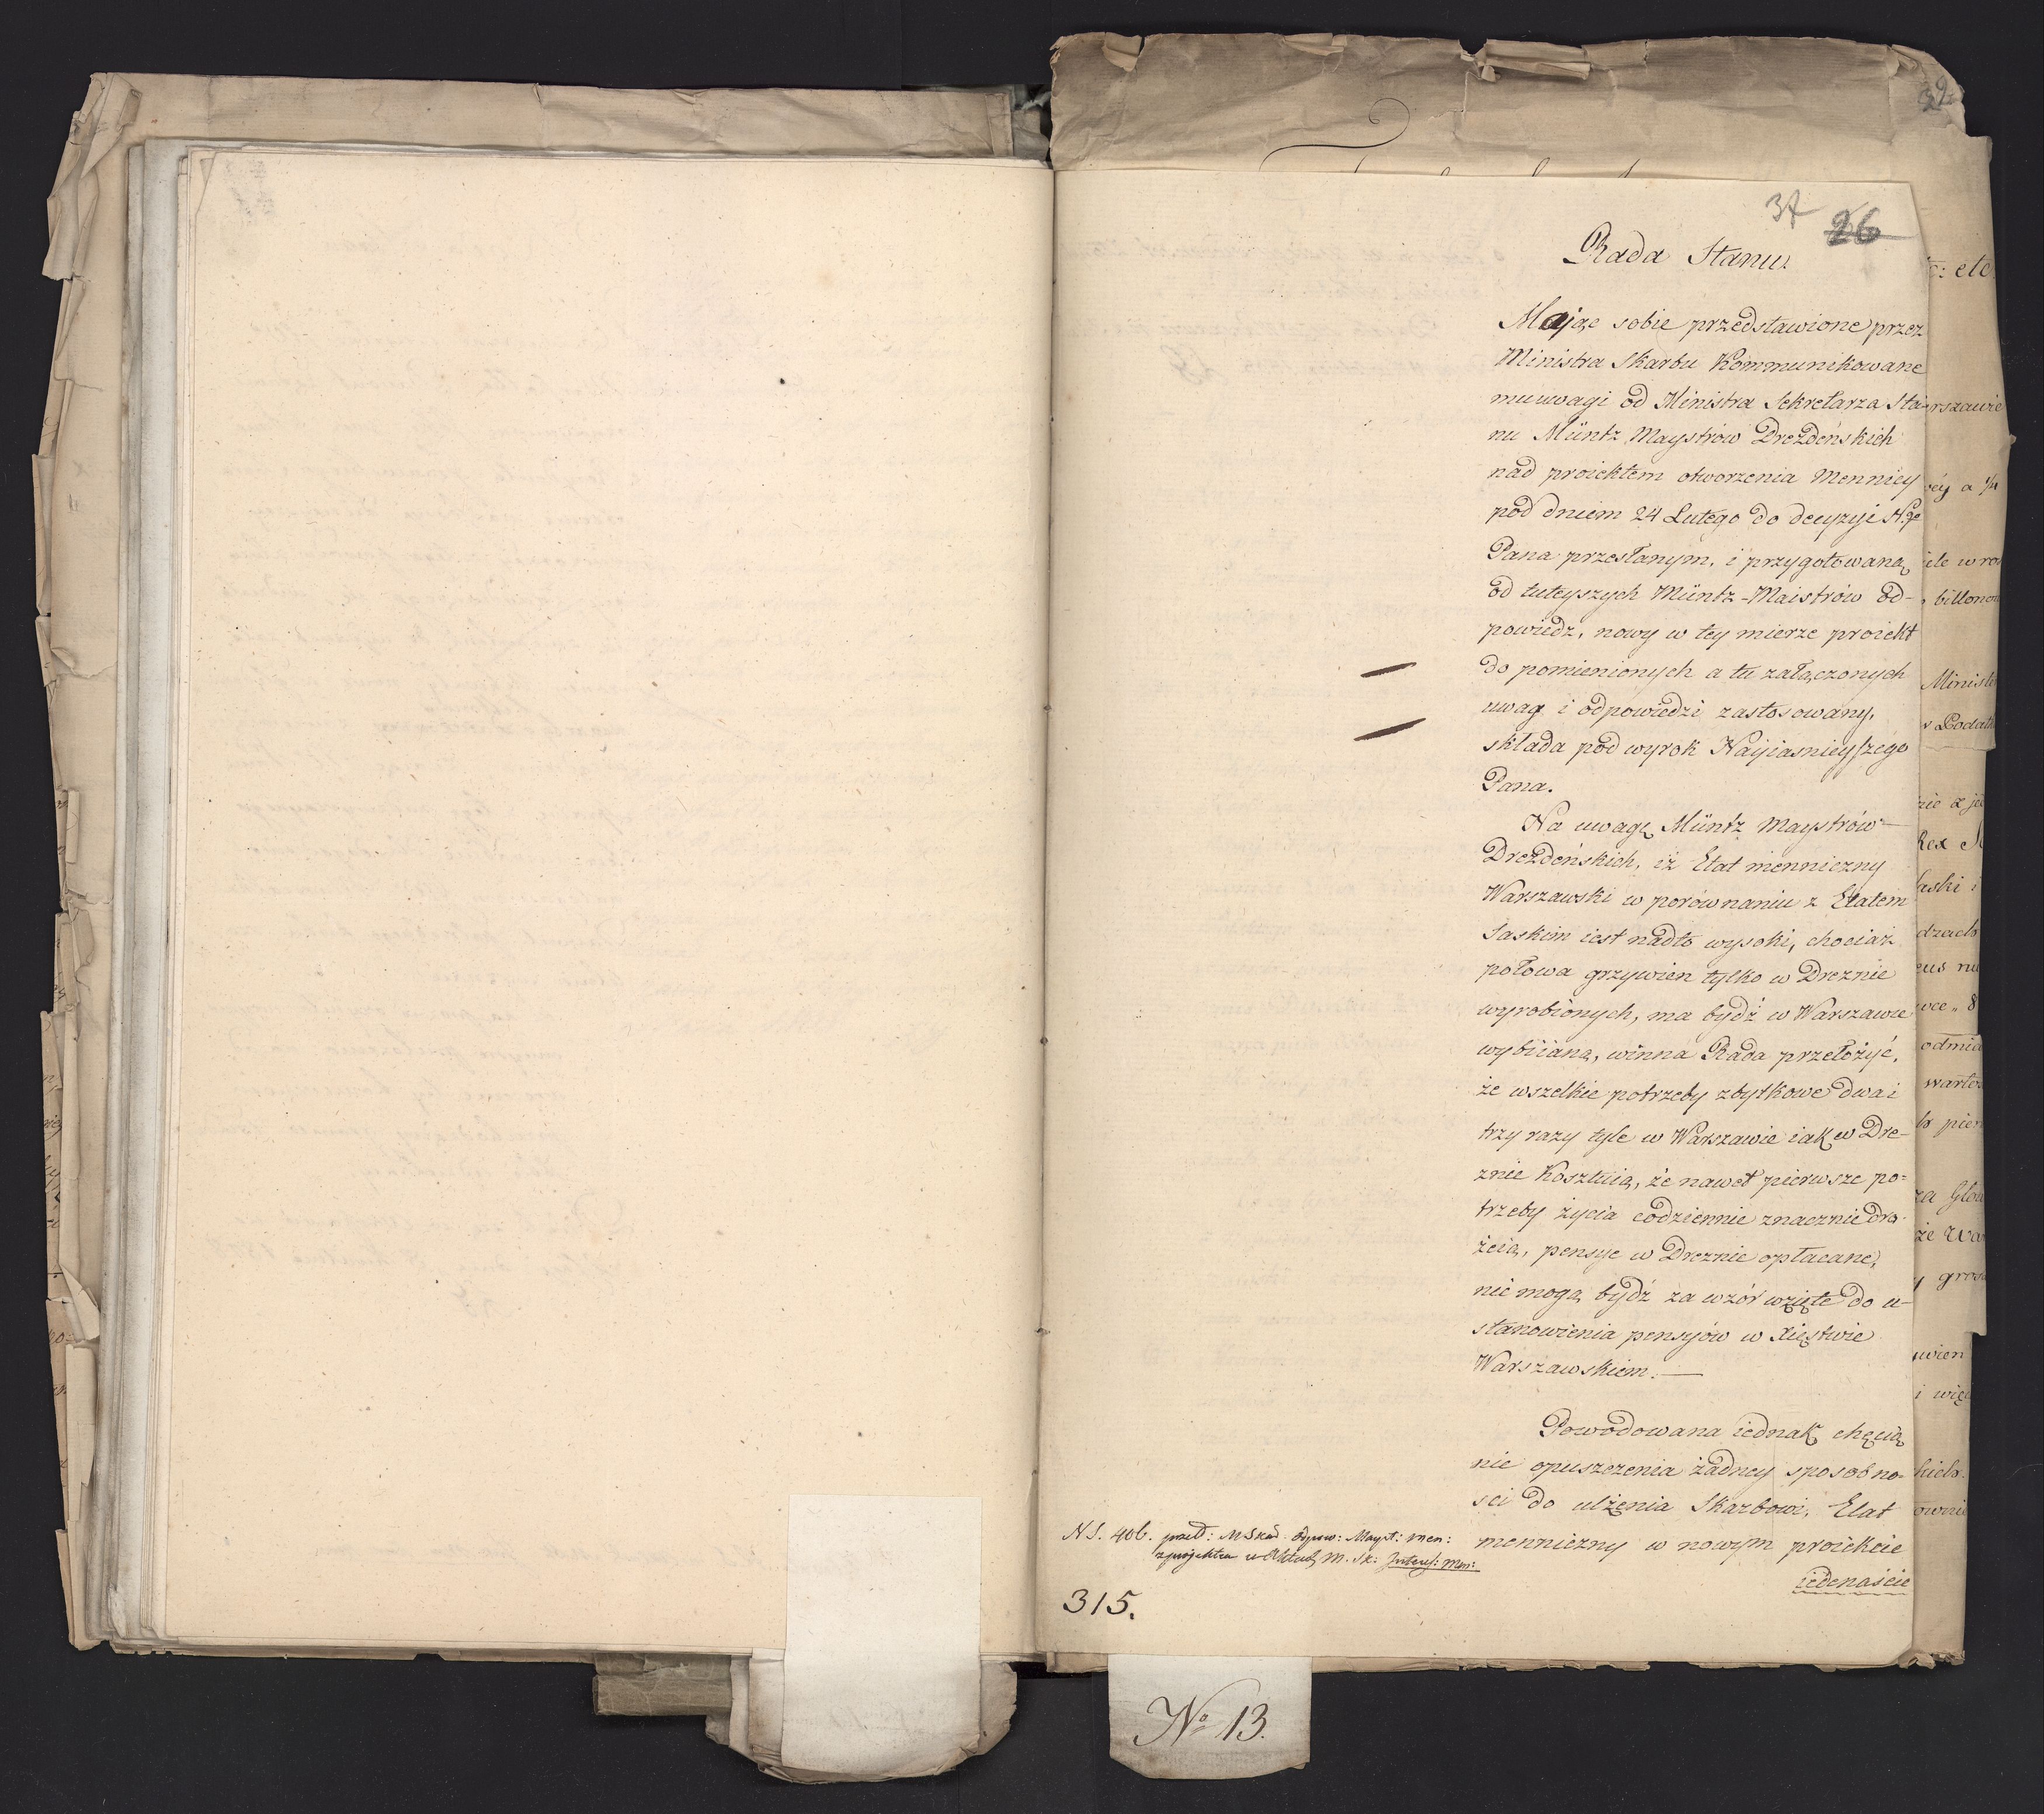 39
37 26
Rada Stanu.
Mając sobie przedstawione przez
Ministra Skarbu Kommunikowane
mu uwagi od Ministra Sekretarza Sta-
nu Müntz Maystrów Drezdeńskich
nad proiektem otworzenia Mennicy
pod dniem 24 Lutego do decyzyi N.go
Pana przesłanym, i przygotowaną
od tuteyszych Müntz-Maistrów od-
powiedz, nowy w tey mierze proiekt
do pomienionych a tu załączonych
uwag i odpowiedzi zastosowany,
składa pod wyrok Nayiasnieyszego
Pana.
Na uwagę Müntz Maystrów
Drezdeńskich, iż Etat menniczny
Warszawski w porównaniu z Etatem
Saskim iest nadto wysoki, chociaż
połowa grzywien tylko w Dreznie
wyrobionych, ma bydź w Warszawie
wybiianą, winna Rada przełożyć,
że wszelkie potrzeby zbytkowe dwa i
trzy razy tyle w Warszawie iak w Dre-
znie Kosztuią, że nawet pierwsze po-
trzeby życia codziennie znacznie dro-
żeią, pensye w Dreznie opłacane,
nie mogą bydź za wzór wzięte do u-
stanowienia pensyów w Xięstwie
Warszawskiem. —
Powodowana iednak chęcią
nie opuszczenia żadney sposobno-
sci do ulżenia Skarbowi, Etat
menniczny w nowym proiekcie
iedenaście
N S. 406. przeł: M Skar. odpow: Mayst: men:
M. Sk: Interes: Men:
315.
No 13.
: etc
rszawie
billonow
Minist
Podat
Rex